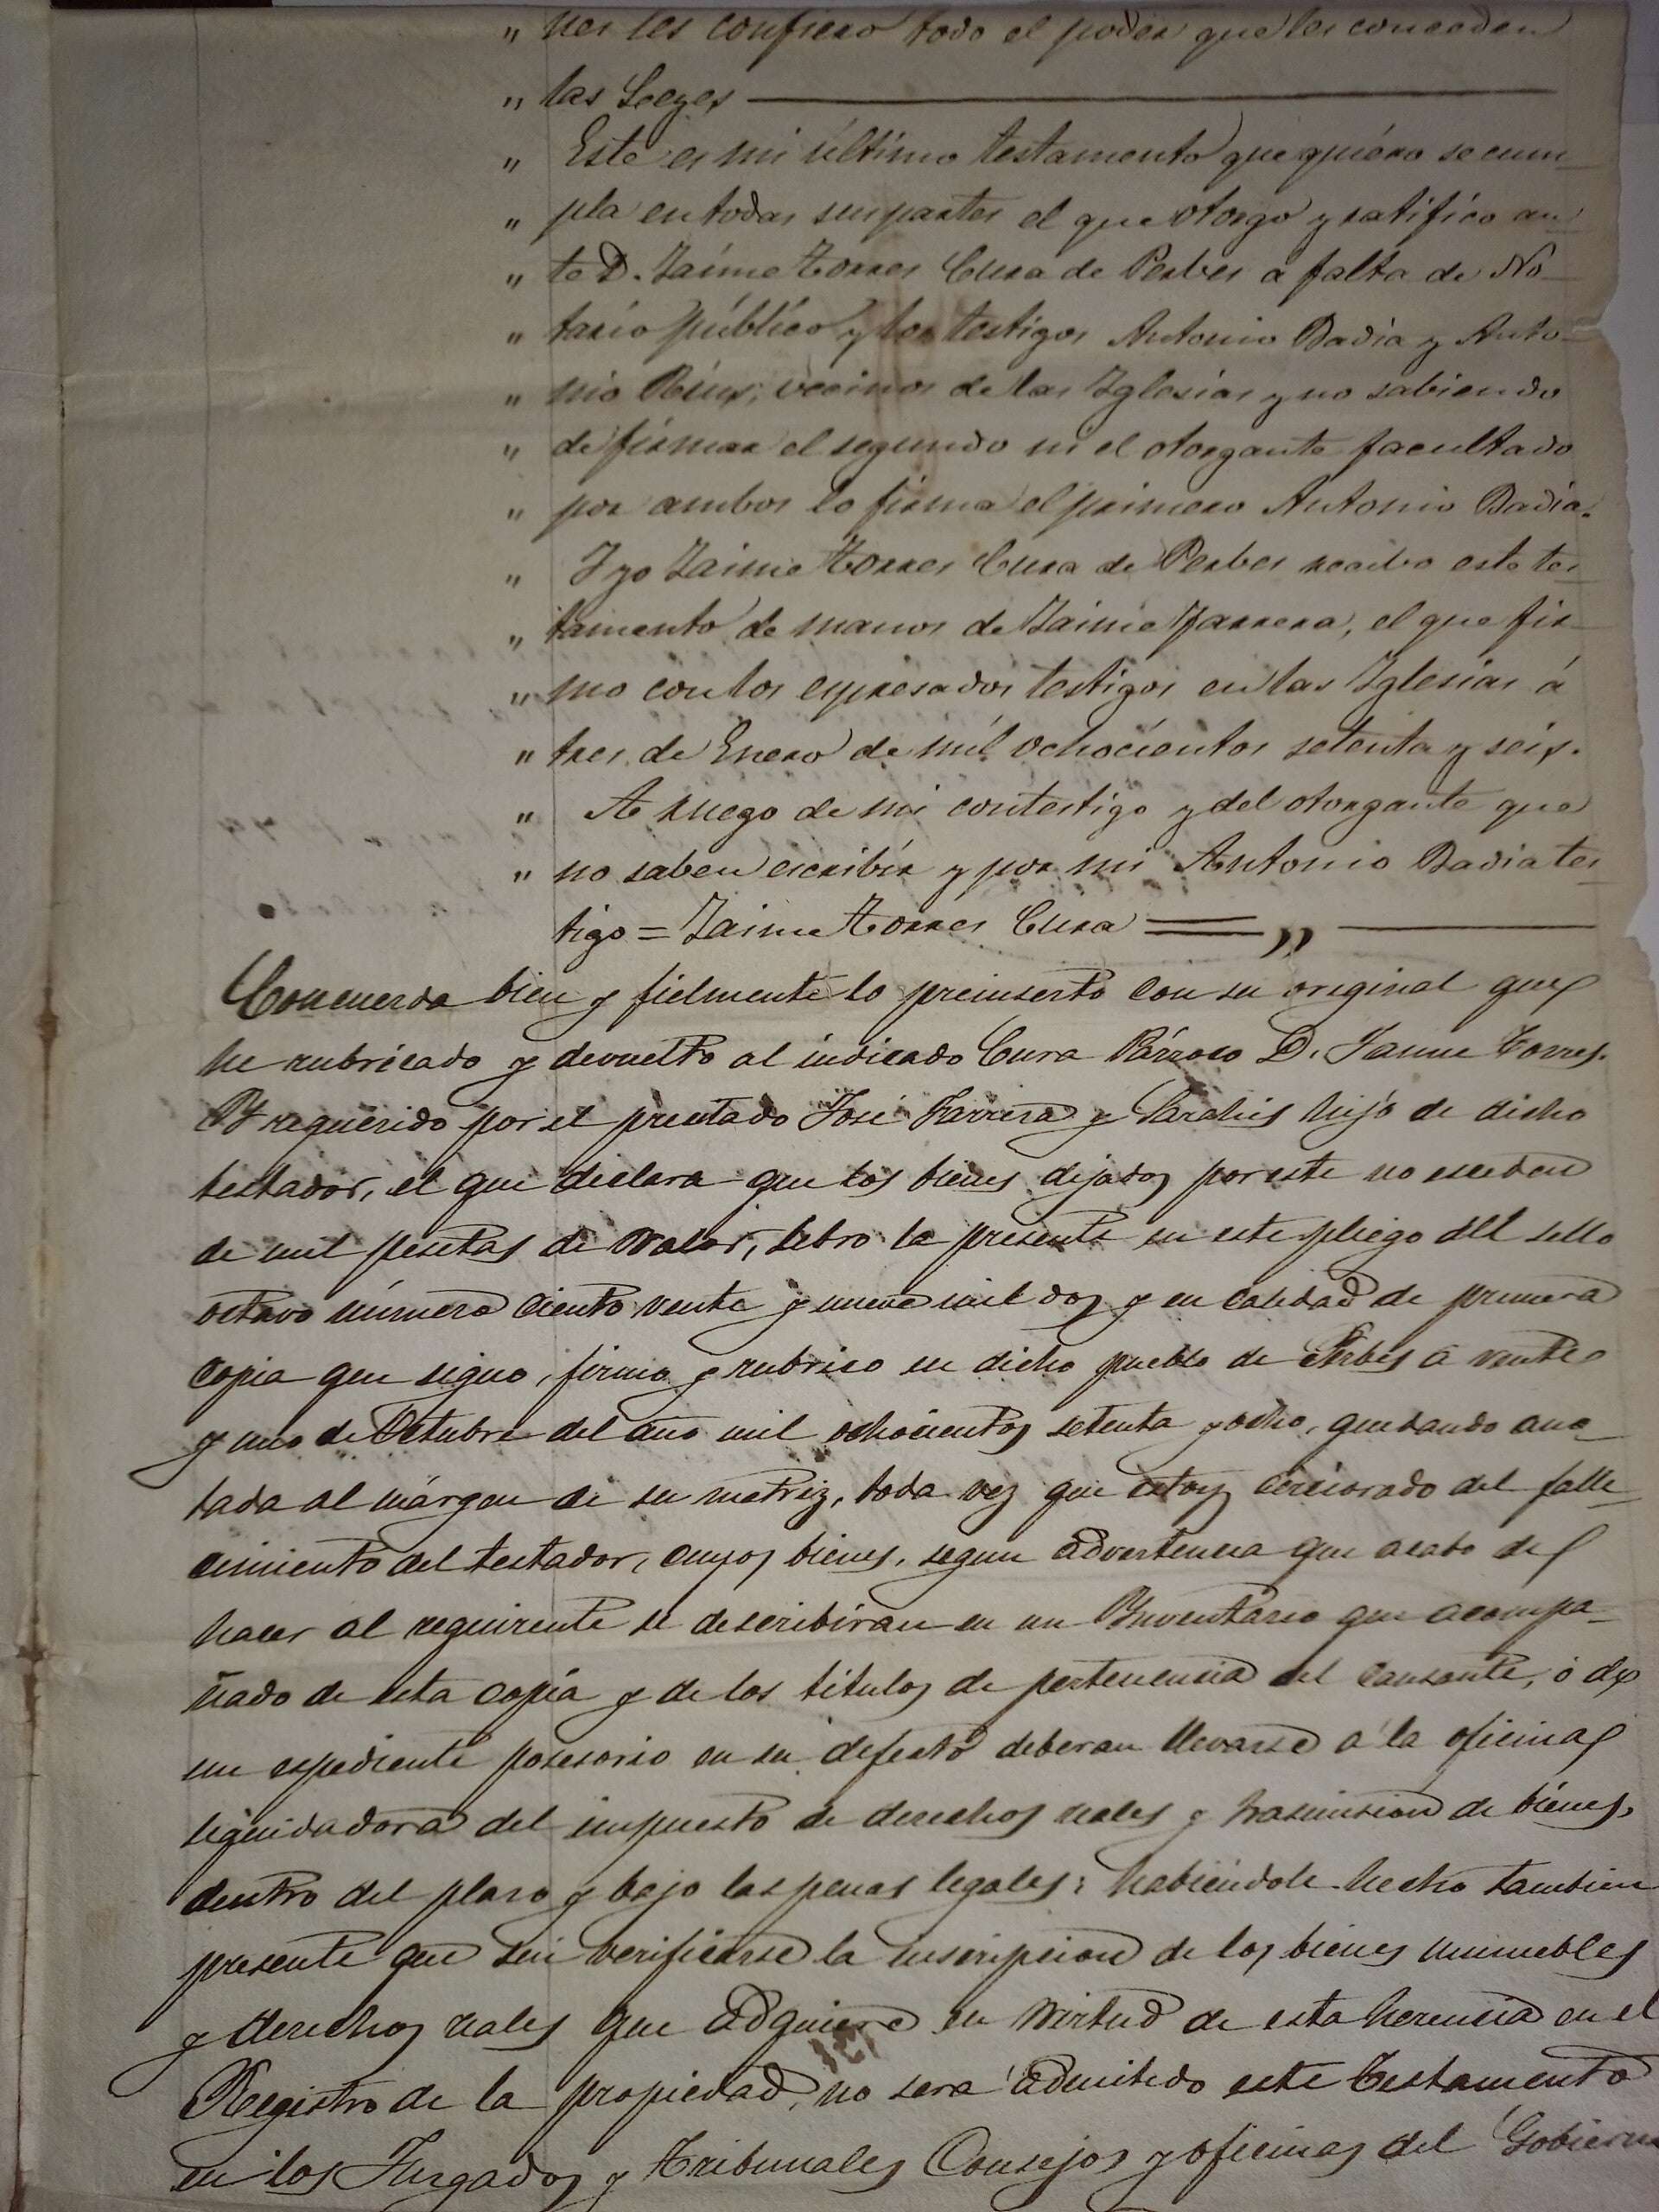 " nes les confiero todo el poder que les conceden
" las Leeyes
" Este es mi último testamento que quiéro se cum-
" pla en todas sus partes el que otorgo y ratifico an-
" te D. Jaime Torres Cura de Perbes a falta de No-
" tario público y los testigos Antonio Badia y Anto-
" nio Réus, vecinos de las Iglesias y no sabiendo
" de firmar el segundo ni el otorgante facultado
" por ambos lo firma el primero Antonio Badia.
" Y yo Jaime Torres Cura de Perbes recibo este tes-
" tamento de manos de Jaime Farrera, el que fir-
" mo con los expresados testigos en las Iglesias á
" tres de Enero de mil ochocientos setenta y seis.
" A ruego de mi contestigo y del otorgante que
" no saben escribir y por mi Antonio Badia tes-
tigo = Jaime Torres Cura = "
Concuerda bien y fielmente lo preinserto con su original que
he rubricado y devuelto al indicado Cura Párroco D. Jaime Torres.
Y requerido por el precitado José Farrera y hijo de dicho
testador, el que declara que los bienes dejados por este no esceden
de mil pesetas de valor, libro la presente en este pliego del sello
octavo número ciento veinte y nueve mil dos y en calidad de primera
copia que signo, firmo y rubrico en dicho pueblo de Perbes á veinte
y uno de Octubre del año mil ochocientos setenta y ocho, quedando ano-
tada al márgen de su matriz, toda vez que estoy cerciorado del falle-
cimiento del testador, cuyos bienes, segun advertencia que acabo de
hacer al requirente se describiran en un Inventario que acompa-
ñado de esta copia y de los titulos de pertenencia del causante, ó de
un espediente posesorio en su defecto deberan llevarse a la oficina
liquidadora del impuesto de derechos reales y trasmision de bienes,
dentro del plazo y bajo las penas legales; habiéndole hecho tambien
presente que sin verificarse la inscripcion de los bienes inmuebles
y derechos reales que adquiere en virtud de esta herencia en el
Registro de la propiedad, no sera admitido este testamento
en los Jusgados y Tribunales Consejos y oficinas del Gobierno